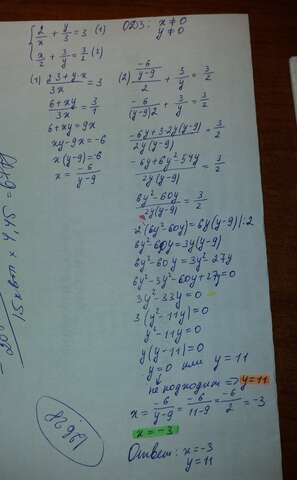 { 2/x + y/3 = 3 (1)
x/2 + 3/y = 3/2 (2)
ОДЗ: x ≠ 0
y ≠ 0
(1) 2·3+y·x/3x = 3
6+xy/3x = 3/1
6+xy = 9x
xy-9x = -6
x(y-9) = -6
x = -6/y-9
(2) -6/y-9/2 + 3/y = 3/2
-6/(y-9)2 + 3/y = 3/2
-6y+3·2(y-9)/2y(y-9) = 3/2
-6y+6y²-54y/2y(y-9) = 3/2
6y²-60y/2y(y-9) = 3/2
2(6y²-60y) = 6y(y-9) |:2
6y²-60y = 3y(y-9)
6y²-60y = 3y²-27y
6y²-3y²-60y+27y = 0
3y²-33y = 0
3(y²-11y) = 0
y²-11y = 0
y(y-11) = 0
y = 0 или y = 11
не подходит => y = 11
x = -6/y-9 = -6/11-9 = -6/2 = -3
x = -3
Ответ: x = -3
y = 11